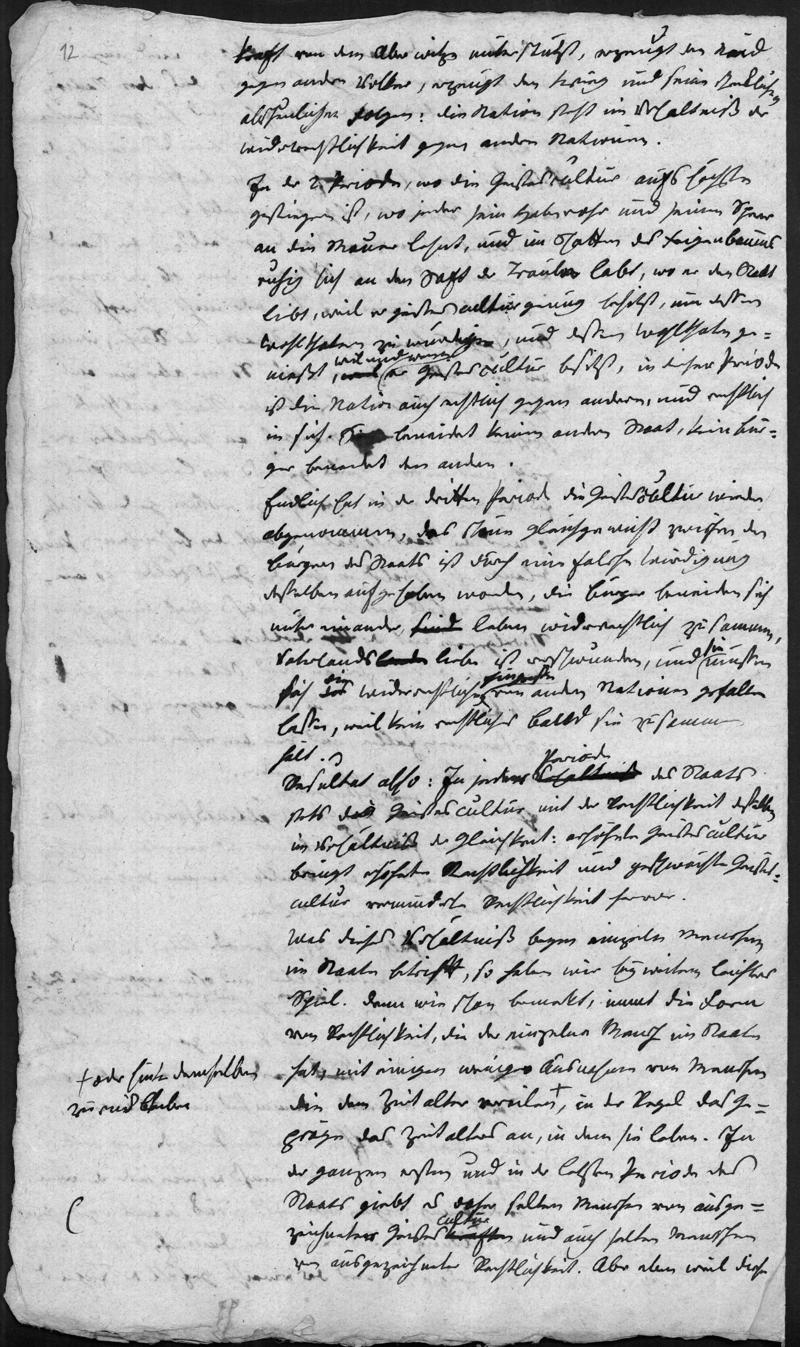 12
kraft von dem Aberwitze unterstützt, erzeugt den Neid
gegen andere Völker, erzeugt den Krieg und seine schrecklichen
abscheulichen Folgen: die Nation steht im Verhältniß der
widerrechtlichkeit gegen andere Nationen.
In der 2. Periode, wo die Geistescultur aufs höchste
gestiegen ist, wo jeder sein Haberrohr und seinen Speer
an die Mauer lehnt, und im Schatten des Feigenbaums
ruhig sich an dem Saft der Trauben labt, wo er den Staat
liebt, weil er geistescultur genug besitzt, um dessen
Wohlthaten zu würdigen, und dessen Wohlthaten ge=
nießt, weil und wenn er Geistescultur besitzt, in dieser Periode
ist die Nation auch rechtlich gegen andere, und rechtlich
in sich. Sie beneidet keinen andern Staat, kein Bür=
ger beneidet den andern.
Endlich hat in der dritten Periode die Geistescultur wieder
abgenommen, das schöne Gleichgewicht zwischen den
Bürgern des Staats ist durch eine falsche Würdigung
desselben aufgehoben worden, die Bürger beneiden sich
unter einander, leben widerrechtlich zusammen,
Vaterlandsliebe ist verschwunden, und sie müssen
sich die widerrechtlichen von andern Nationen gefallen
lassen, weil kein rechtliches Band sie zusammen
hält.
Resultat also: In jeder Periode des Staats
steht die Geistescultur mit der Rechtlichkeit desselben
im Verhältniß der Gleichheit: erhöhete Geistescultur
bringt erhöhete Rechtlichkeit und geschwächte Geistes=
cultur verminderte Rechtlichkeit hervor.
Was dieses Verhältniß beym einzelnen Menschen
im Staate betrifft, so haben wir bey weitem leichteres
Spiel. Denn wie schon bemerkt, nimmt die Form
von Rechtlichkeit, die der einzelne Mensch im Staate
hat, mit einigen wenigen Ausnahmen von Menschen
die dem Zeitalter voreilen +, in der Regel das Ge=
präge des Zeitalters an, in dem sie leben. In
+ oder hinter demselben
zurück bleiben
der ganzen ersten und in der letzten Periode des
Staats giebt es daher selten Menschen von ausge=
zeichneter Geistescultur und auch selten Menschen
von ausgezeichneter Rechtlichkeit. Aber eben weil diese